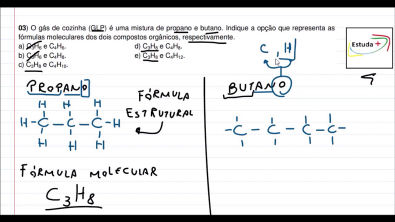 03) O gás de cozinha (GLP) é uma mistura de propano e butano. Indique a opção que representa as
fórmulas moleculares dos dois compostos orgânicos, respectivamente.
a) C₃H₆ e C₄H₈. d) C₃H₈ e C₄H₈.
e) C₃H₈ e C₄H₁₂.
C H
Estuda +
PROPANO
FÓRMULA
ESTRUTURAL
BUTANO
H H H
H-C-C-C-H
H H H
-C-C-C-C-
FÓRMULA MOLECULAR
C₃H₈